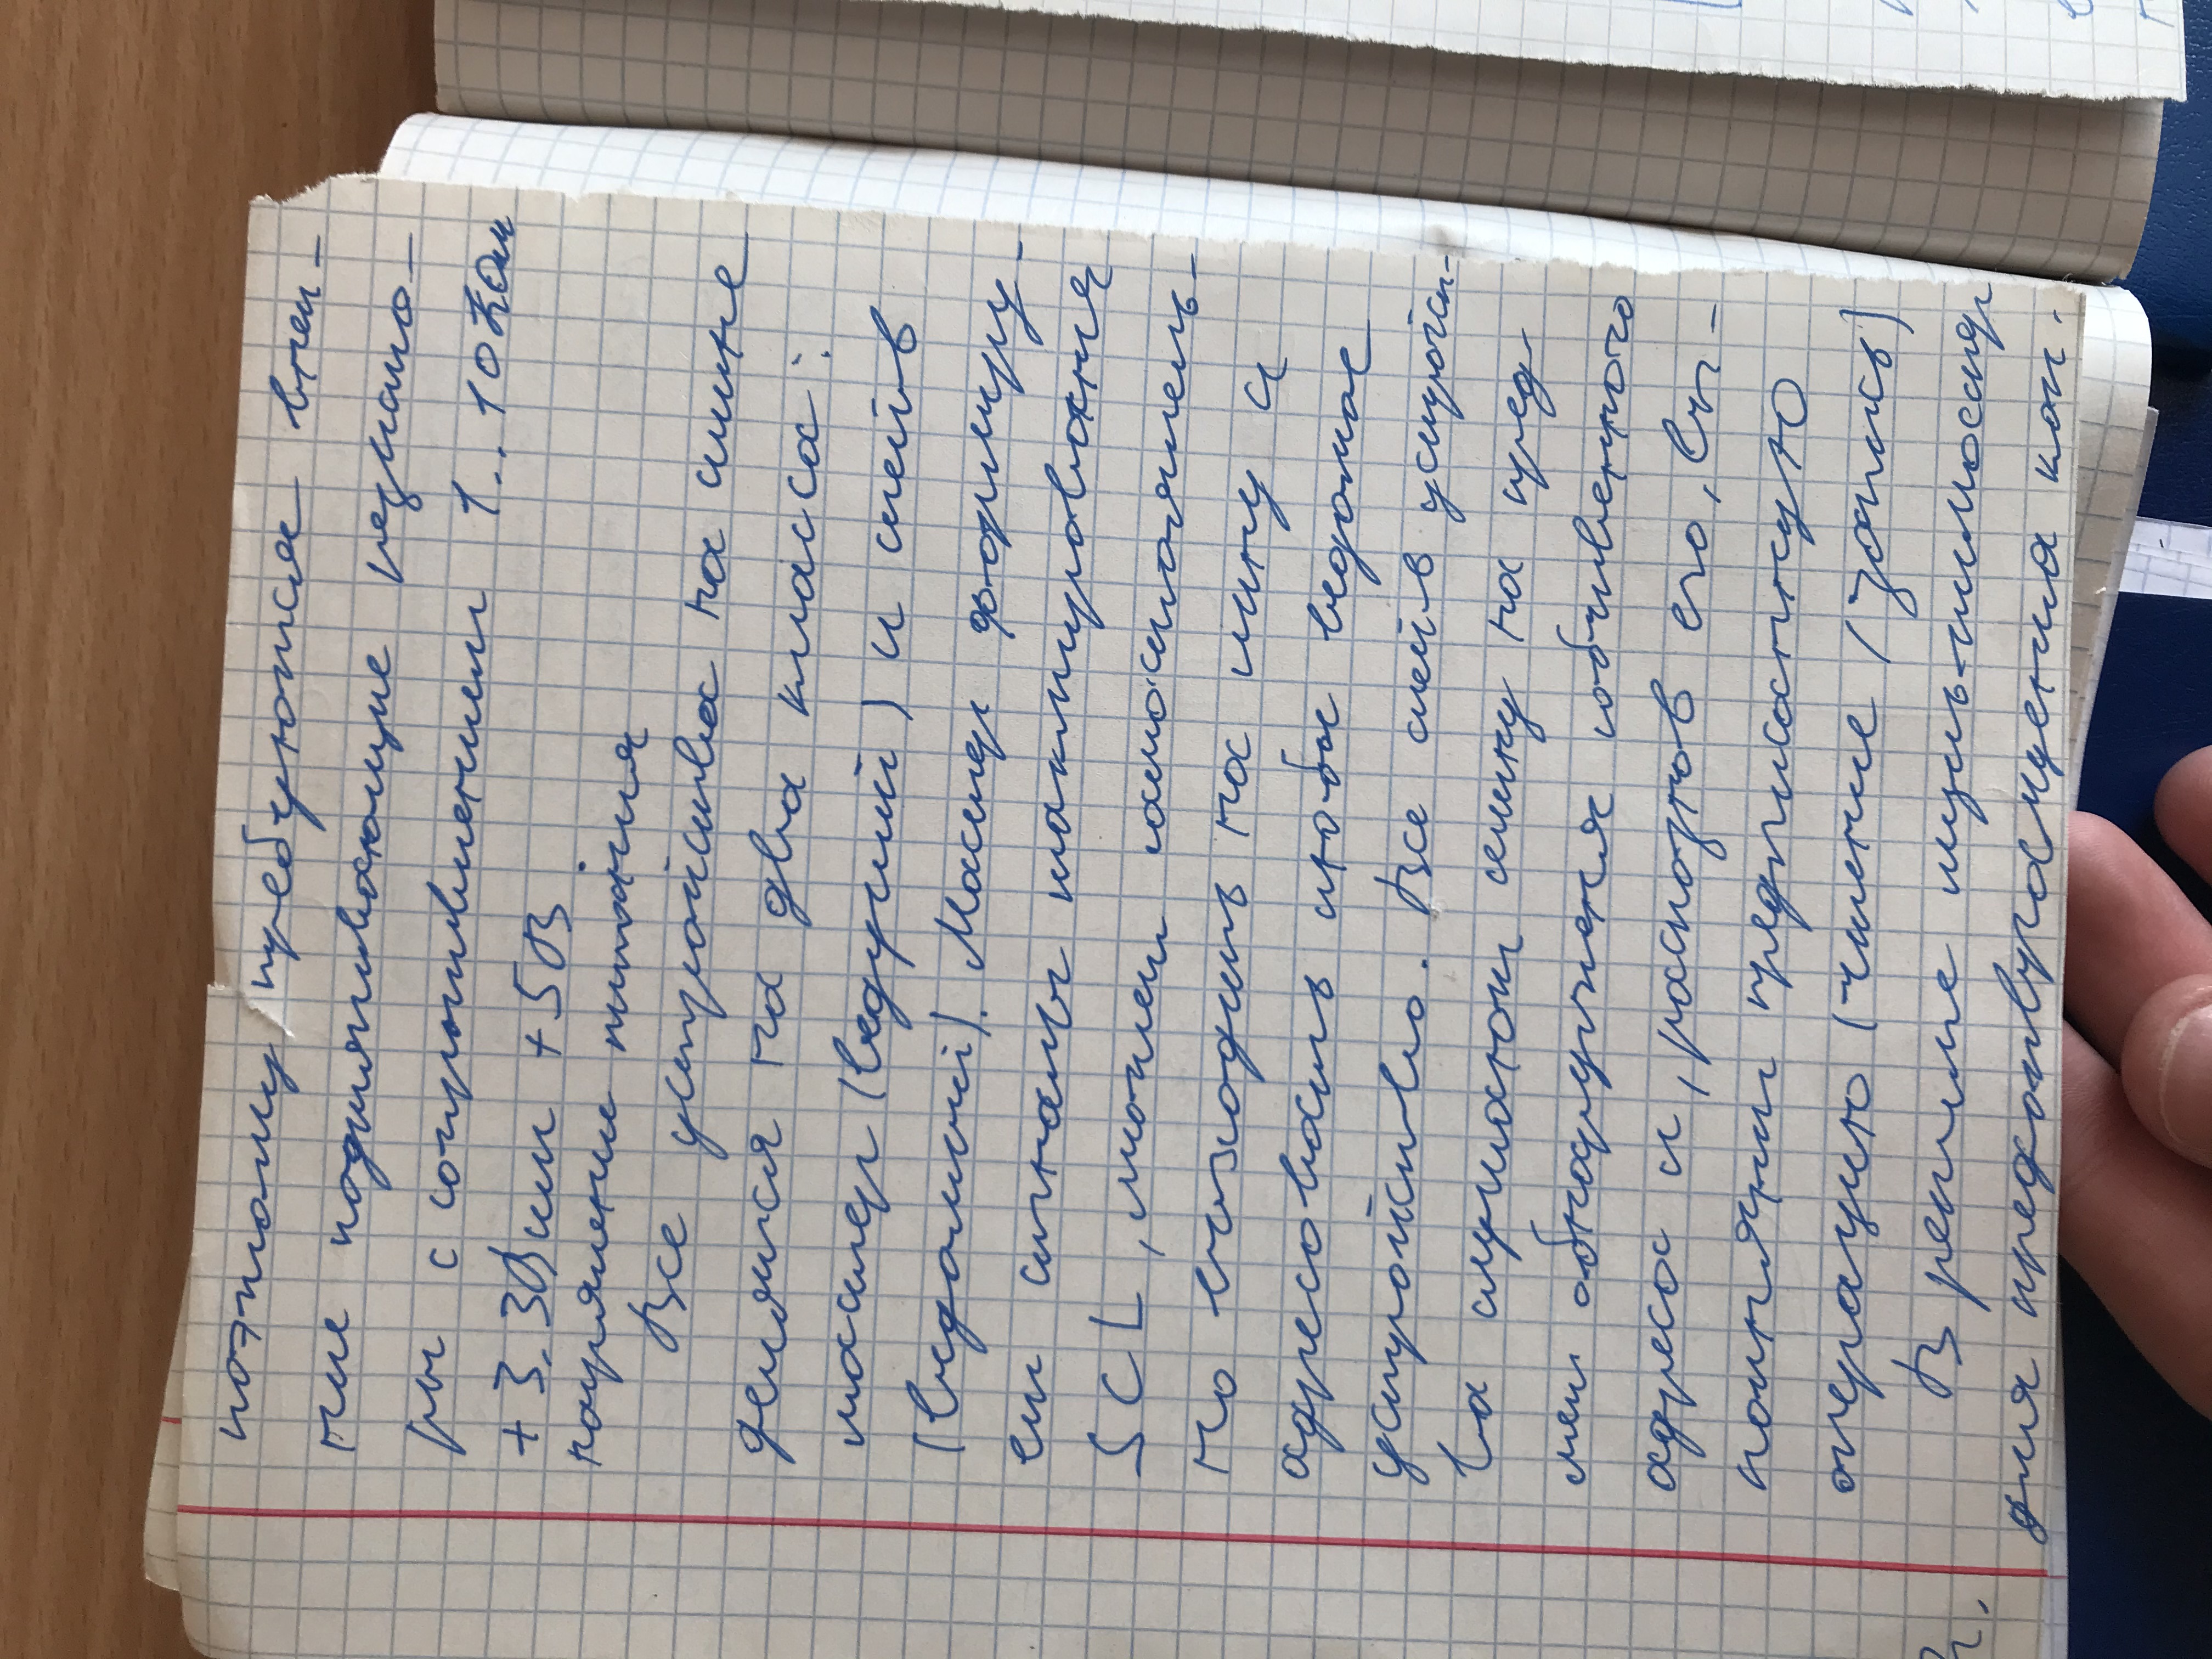 поэтому требуются внеш-
ние подтягивающие резисто-
ры с сопротивлением 1..10 кОм
+3.3В или +5В.
напряжение питания
Все устройства на шине
делятся на два класса:
мастер (ведущий) и слейв
(ведомый). Мастер формиру-
ет сигналы тактирования
SCL, может самостоятель-
но выходить на шину и
адресовать любое ведомое
устройство. Все слейв устройст-
ва слушают шину на пред-
мет обнаружения собственного
адреса и, распознав его, вы-
полняют предписанную
операцию (чтение / запись)
В режиме мультимастер
для предотвращения кол-